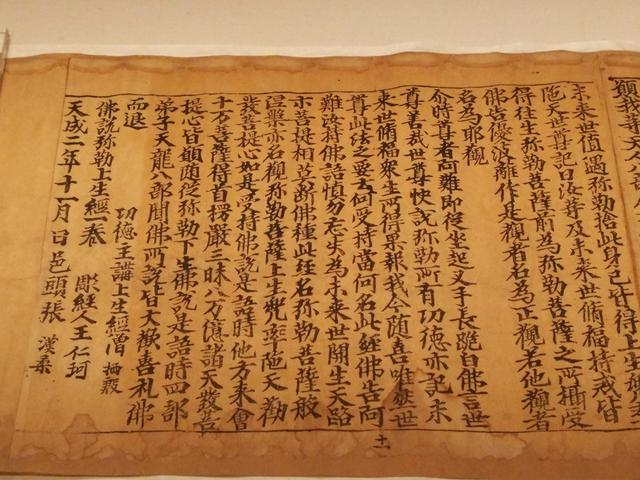 未來世值遇弥勒捨此身已皆得上生
陁天世尊記曰汝等及未來世脩福持戒皆
得往生弥勒菩薩前為弥勒菩薩之所攝受
佛告優波離作是觀者名為正觀若他觀者
名為耶觀
尒時尊者阿難即從坐起叉手長跪白佛言世
尊善哉世尊快說弥勒所有功德亦記未
來世脩福衆生所得果報我今随喜唯然世
尊此法之要云何受持當何名此經佛告阿
難汝持佛語慎勿忘失為未來世開生天路
示菩提相莫斷佛種此經名弥勒菩薩般
涅槃亦名觀弥勒菩薩上生兜率陁天勸
十一
發菩提心如是受持佛說是語時他方來會
十万菩薩得首楞嚴三昧八万億諸天發菩
提心皆願随從弥勒下生佛說是語時四部
弟子天龍八部聞佛所說皆大歡喜礼佛
而退
功德主講上生經僧 栖殷
佛說弥勒上生經一卷 彫經人王仁珂
天成二年十一月日邑頭張 漢柔